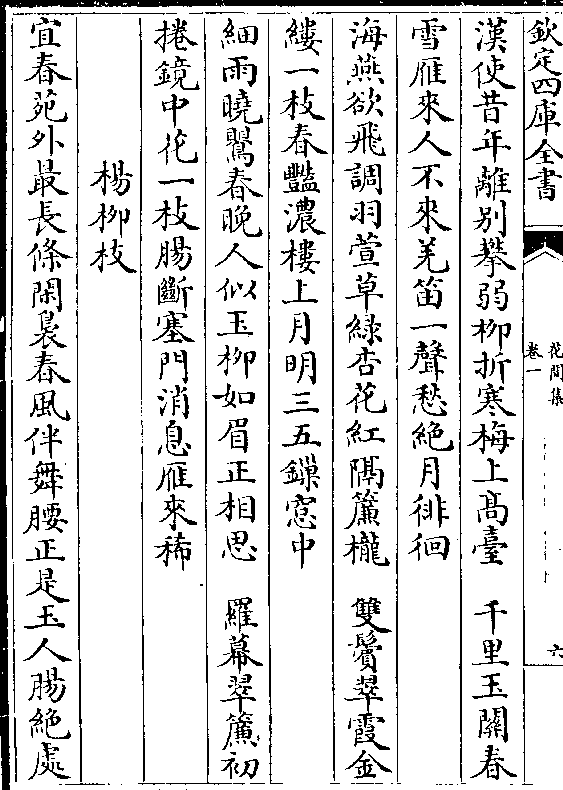 欽定四庫全書
花間集
卷一
六
漢使昔年離别攀弱柳折寒梅上髙臺　千里玉關春
雪雁來人不來羌笛一聲愁絶月徘徊
海燕欲飛調羽萱草綠杏花紅隔簾櫳　雙鬢翠霞金
縷一枝春豔濃樓上月明三五鏁窓中
細雨曉鶯春晚人似玉柳如眉正相思　羅幕翠簾初
捲鏡中花一枝腸斷塞門消息雁來稀
楊柳枝
宜春苑外最長條閑裊春風伴舞腰正是玉人腸絶處